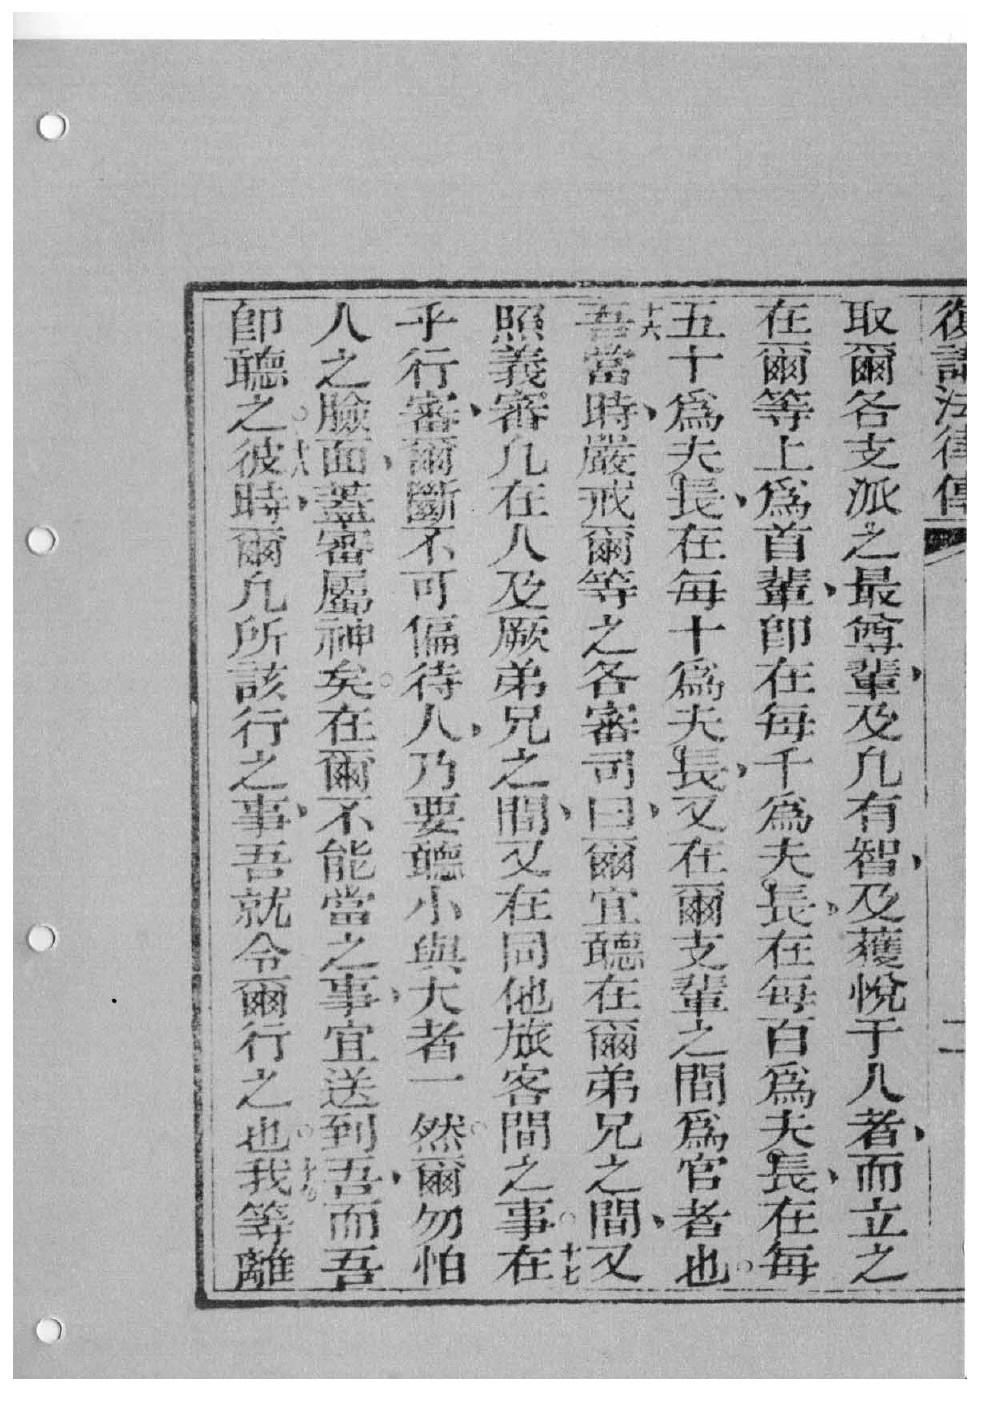 復講法律傳 二
取爾各支派之最尊輩、及凡有智、及獲悅于人者、而立之
在爾等上爲首輩、卽在每千爲夫長、在每百爲夫長、在每
五十爲夫長、在每十爲夫長、又在爾支輩之間爲官者也。
十六吾當時、嚴戒爾等之各審司曰、爾宜聽在爾弟兄之間、又
照義審凡在人及厥弟兄之間、又在同他旅客間之事。十七在
乎行審、爾斷不可偏待人、乃要聽小與大者一然。爾勿怕
人之臉面、蓋審屬神矣。在爾不能當之事、宜送到吾、而吾
卽聽之。十八彼時、爾凡所該行之事、吾就令爾行之也。十九我等離